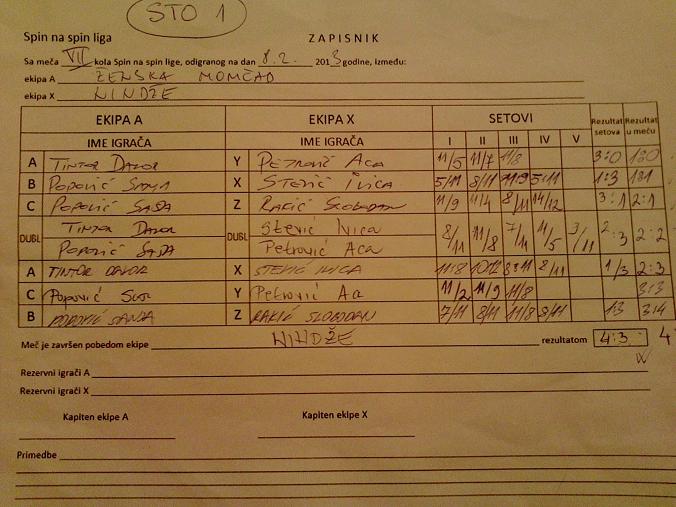 STO 1
Spin na spin liga
ZAPISNIK
Sa meča VII kola Spin na spin lige, odigranog na dan 8.2. 2013 godine, između:
ekipa A ŽENSKA MOMČAD
ekipa X NINDŽE
EKIPA A EKIPA X SETOVI Rezultat setova Rezultat u meču
IME IGRAČA IME IGRAČA I II III IV V
A TINTOR DAVOR Y PETROVIĆ ACA 11/5 11/7 11/8 3:0 1:0
B POPOVIĆ SANJA X STEVIĆ IVICA 5/11 8/11 11/9 5:11 1:3 1:1
C POPOVIĆ SAŠA Z RAKIĆ SLOBODAN 11/9 11/4 8/11 14/12 3:1 2:1
DUBL TINTOR DAVOR DUBL Stević Ivica 8/11 11/8 7/11 11/5 3/11 2:3 2:2
POPOVIĆ SAŠA Petrović Aca
A TINTOR DAVOR X STEVIĆ IVICA 11:8 10/12 8:11 8/11 1/3 2:3
C Popović Y Petrović 11/2 11/9 11/8 3:3
B POPOVIĆ SANJA Z RAKIĆ SLOBODAN 7/11 8/11 11/8 9/11 1:3 3:4
Meč je završen pobedom ekipe NINDŽE rezultatom 4:3
Rezervni igrači A
Rezervni igrači X
Kapiten ekipe A Kapiten ekipe X
Primedbe